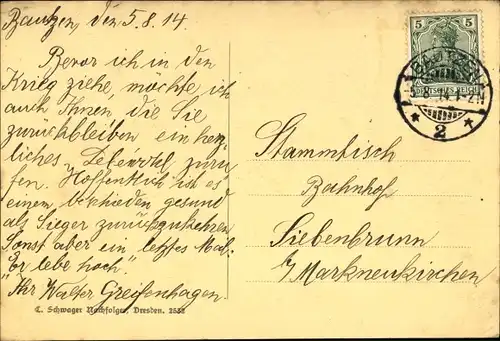 Bautzen, den 5.8.14.
Bevor ich in den
Krieg ziehe, möchte ich
auch Ihnen, die Sie
zurückbleiben ein herz
liches "Lebewohl" zuru
fen. Hoffentlich ist es
einem beschieden gesund
als Sieger zurückzukehren
Sonst aber ein letztes Mal:
"Er lebe hoch"
"Ihr Walter Greifenhagen
C. Schwager Nachfolger, Dresden. 2553
5 5
DEUTSCHES REICH
BAUTZEN
5.8.14.1-2N
* 2 *
Stammtisch
Bahnhof
Siebenbrunn
b/ Markneukirchen